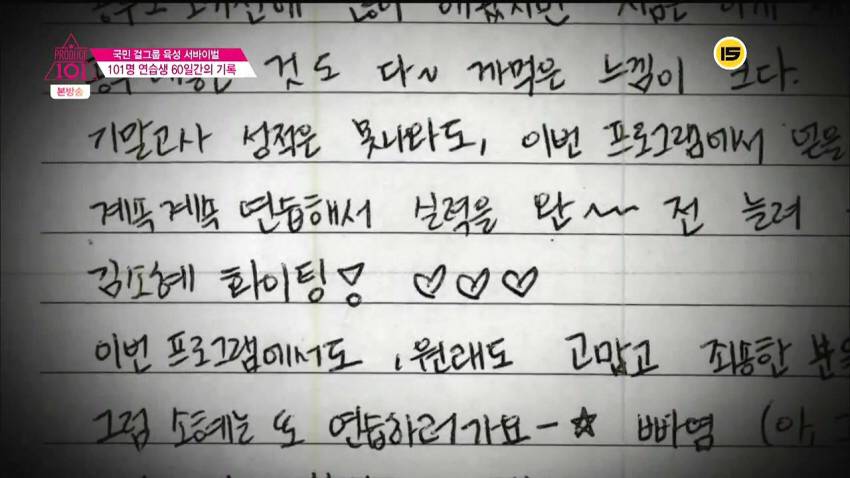 PRODUCE
101
본방송
국민 걸그룹 육성 서바이벌
101명 연습생 60일간의 기록
15
것도 다~ 까먹은 느낌이 크다.
기말고사 성적은 못나와도, 이번 프로그램에서 얻을
계쏙계쏙 연습해서 실력을 완~~ 전 늘려
김소혜 화이팅! ♡♡♡
이번 프로그램에서도, 원래도 고맙고 죄송한 분
그럼 소혜는 또 연습하러가요-☆ 빠염 (아,